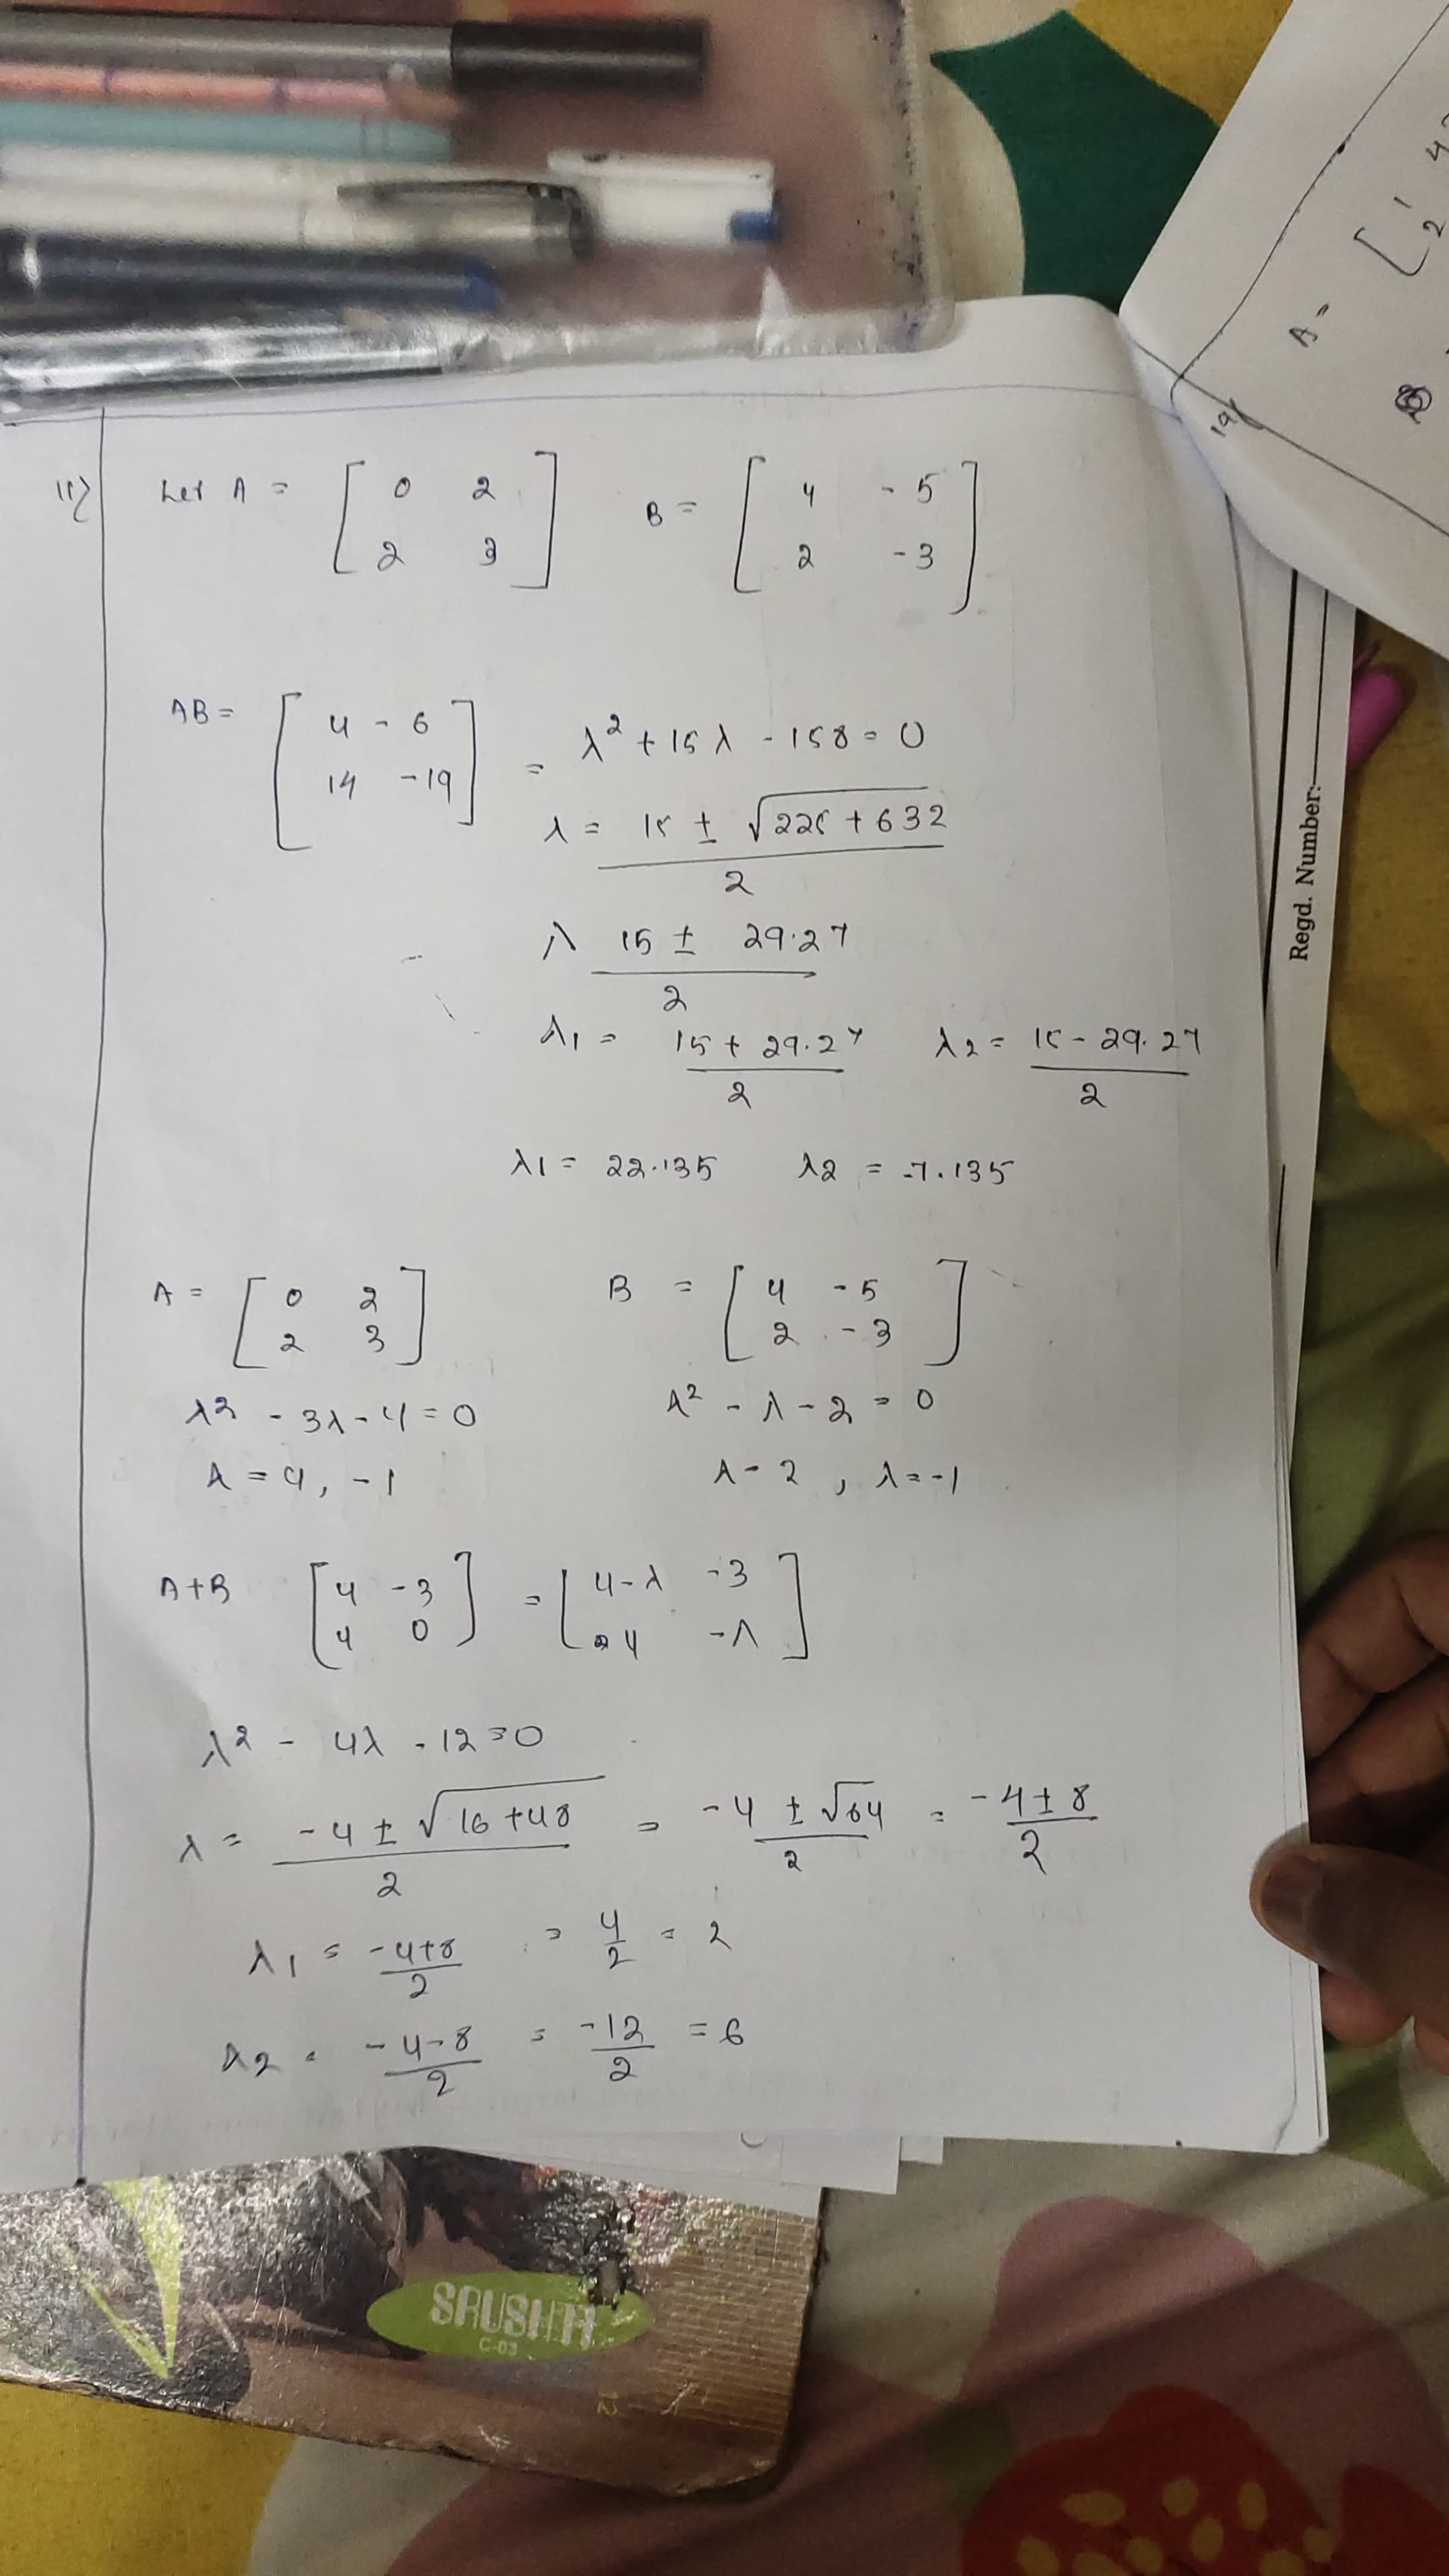 11) Let A = [ 0 2 B = [ 4 -5
2 3 ] 2 -3 ]
AB = [ 4 -6
14 -19 ] = λ² + 15λ - 158 = 0
λ = 15 ± √225 + 632
2
λ 15 ± 29.27
2
λ1 = 15 + 29.27 λ2 = 15 - 29.27
2 2
λ1 = 22.135 λ2 = -7.135
A = [ 0 2 B = [ 4 -5
2 3 ] 2 -3 ]
λ2 - 3λ - 4 = 0 λ² - λ - 2 = 0
λ = 4, -1 λ - 2 , λ = -1
A+B [ 4 -3 = [ 4-λ -3
4 0 ] 4 -λ ]
λ2 - 4λ - 12 = 0
λ = -4 ± √16 + 48 = -4 ± √64 = -4 ± 8
2 2 2
λ1 = -4+8 = 4 = 2
2 2
λ2 = -4-8 = -12 = 6
2 2
A = [ 1 4
2
19)
Regd. Number:
SRUSHTI
C-03
12